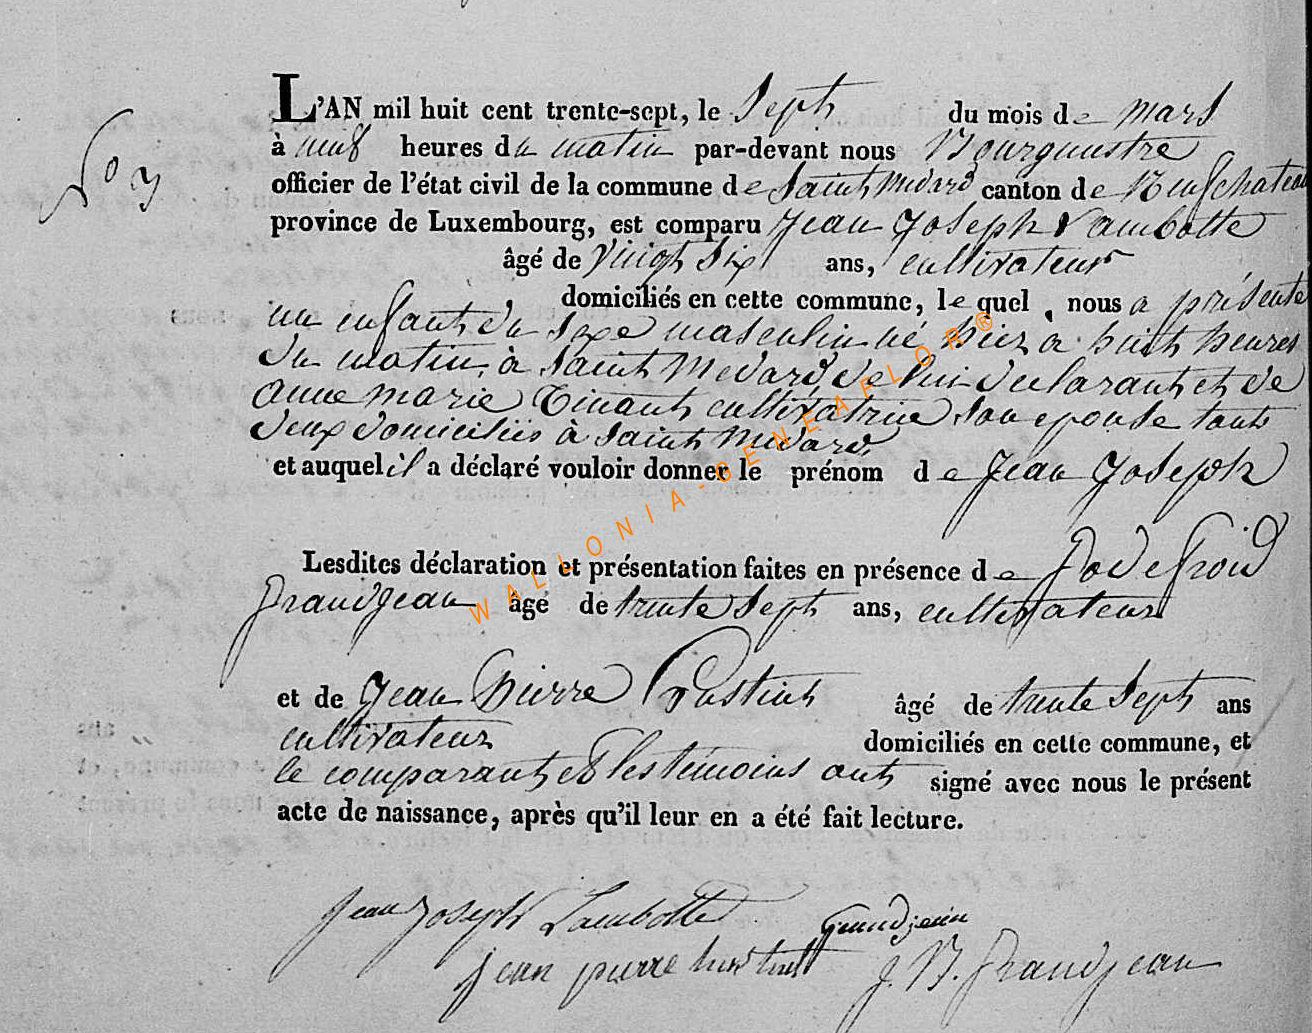 L'AN mil huit cent trente-sept, le Sept du mois de mars
No 3
à neuf heures du matin par-devant nous Bourgmestre
officier de l'état civil de la commune de Saint Medard canton de Neufchateau
province de Luxembourg, est comparu Jean Joseph Lambotte
âgé de vingt Six ans, cultivateur
domiciliés en cette commune, le quel, nous a présenté
un enfant du Sexe masculin né hier à huit heures
du matin, à Saint Medard, de lui declarant et de
anne marie Tinant cultivatrice Son epouse touts
deux domiciliés à Saint Medard.
et auquel il a déclaré vouloir donner le prénom de Jean Joseph
Lesdites déclaration et présentation faites en présence de Godefroid
Grandjean âgé de trente Sept ans, cultivateur
et de Jean Pierre âgé de trente Sept ans
cultivateur domiciliés en cette commune, et
le comparant et les témoins ont signé avec nous le présent
acte de naissance, après qu'il leur en a été fait lecture.
Jean Joseph Lambotte Grandjean
jean pierre J. B. Grandjean
WALLONIA-GENEAFLOR®